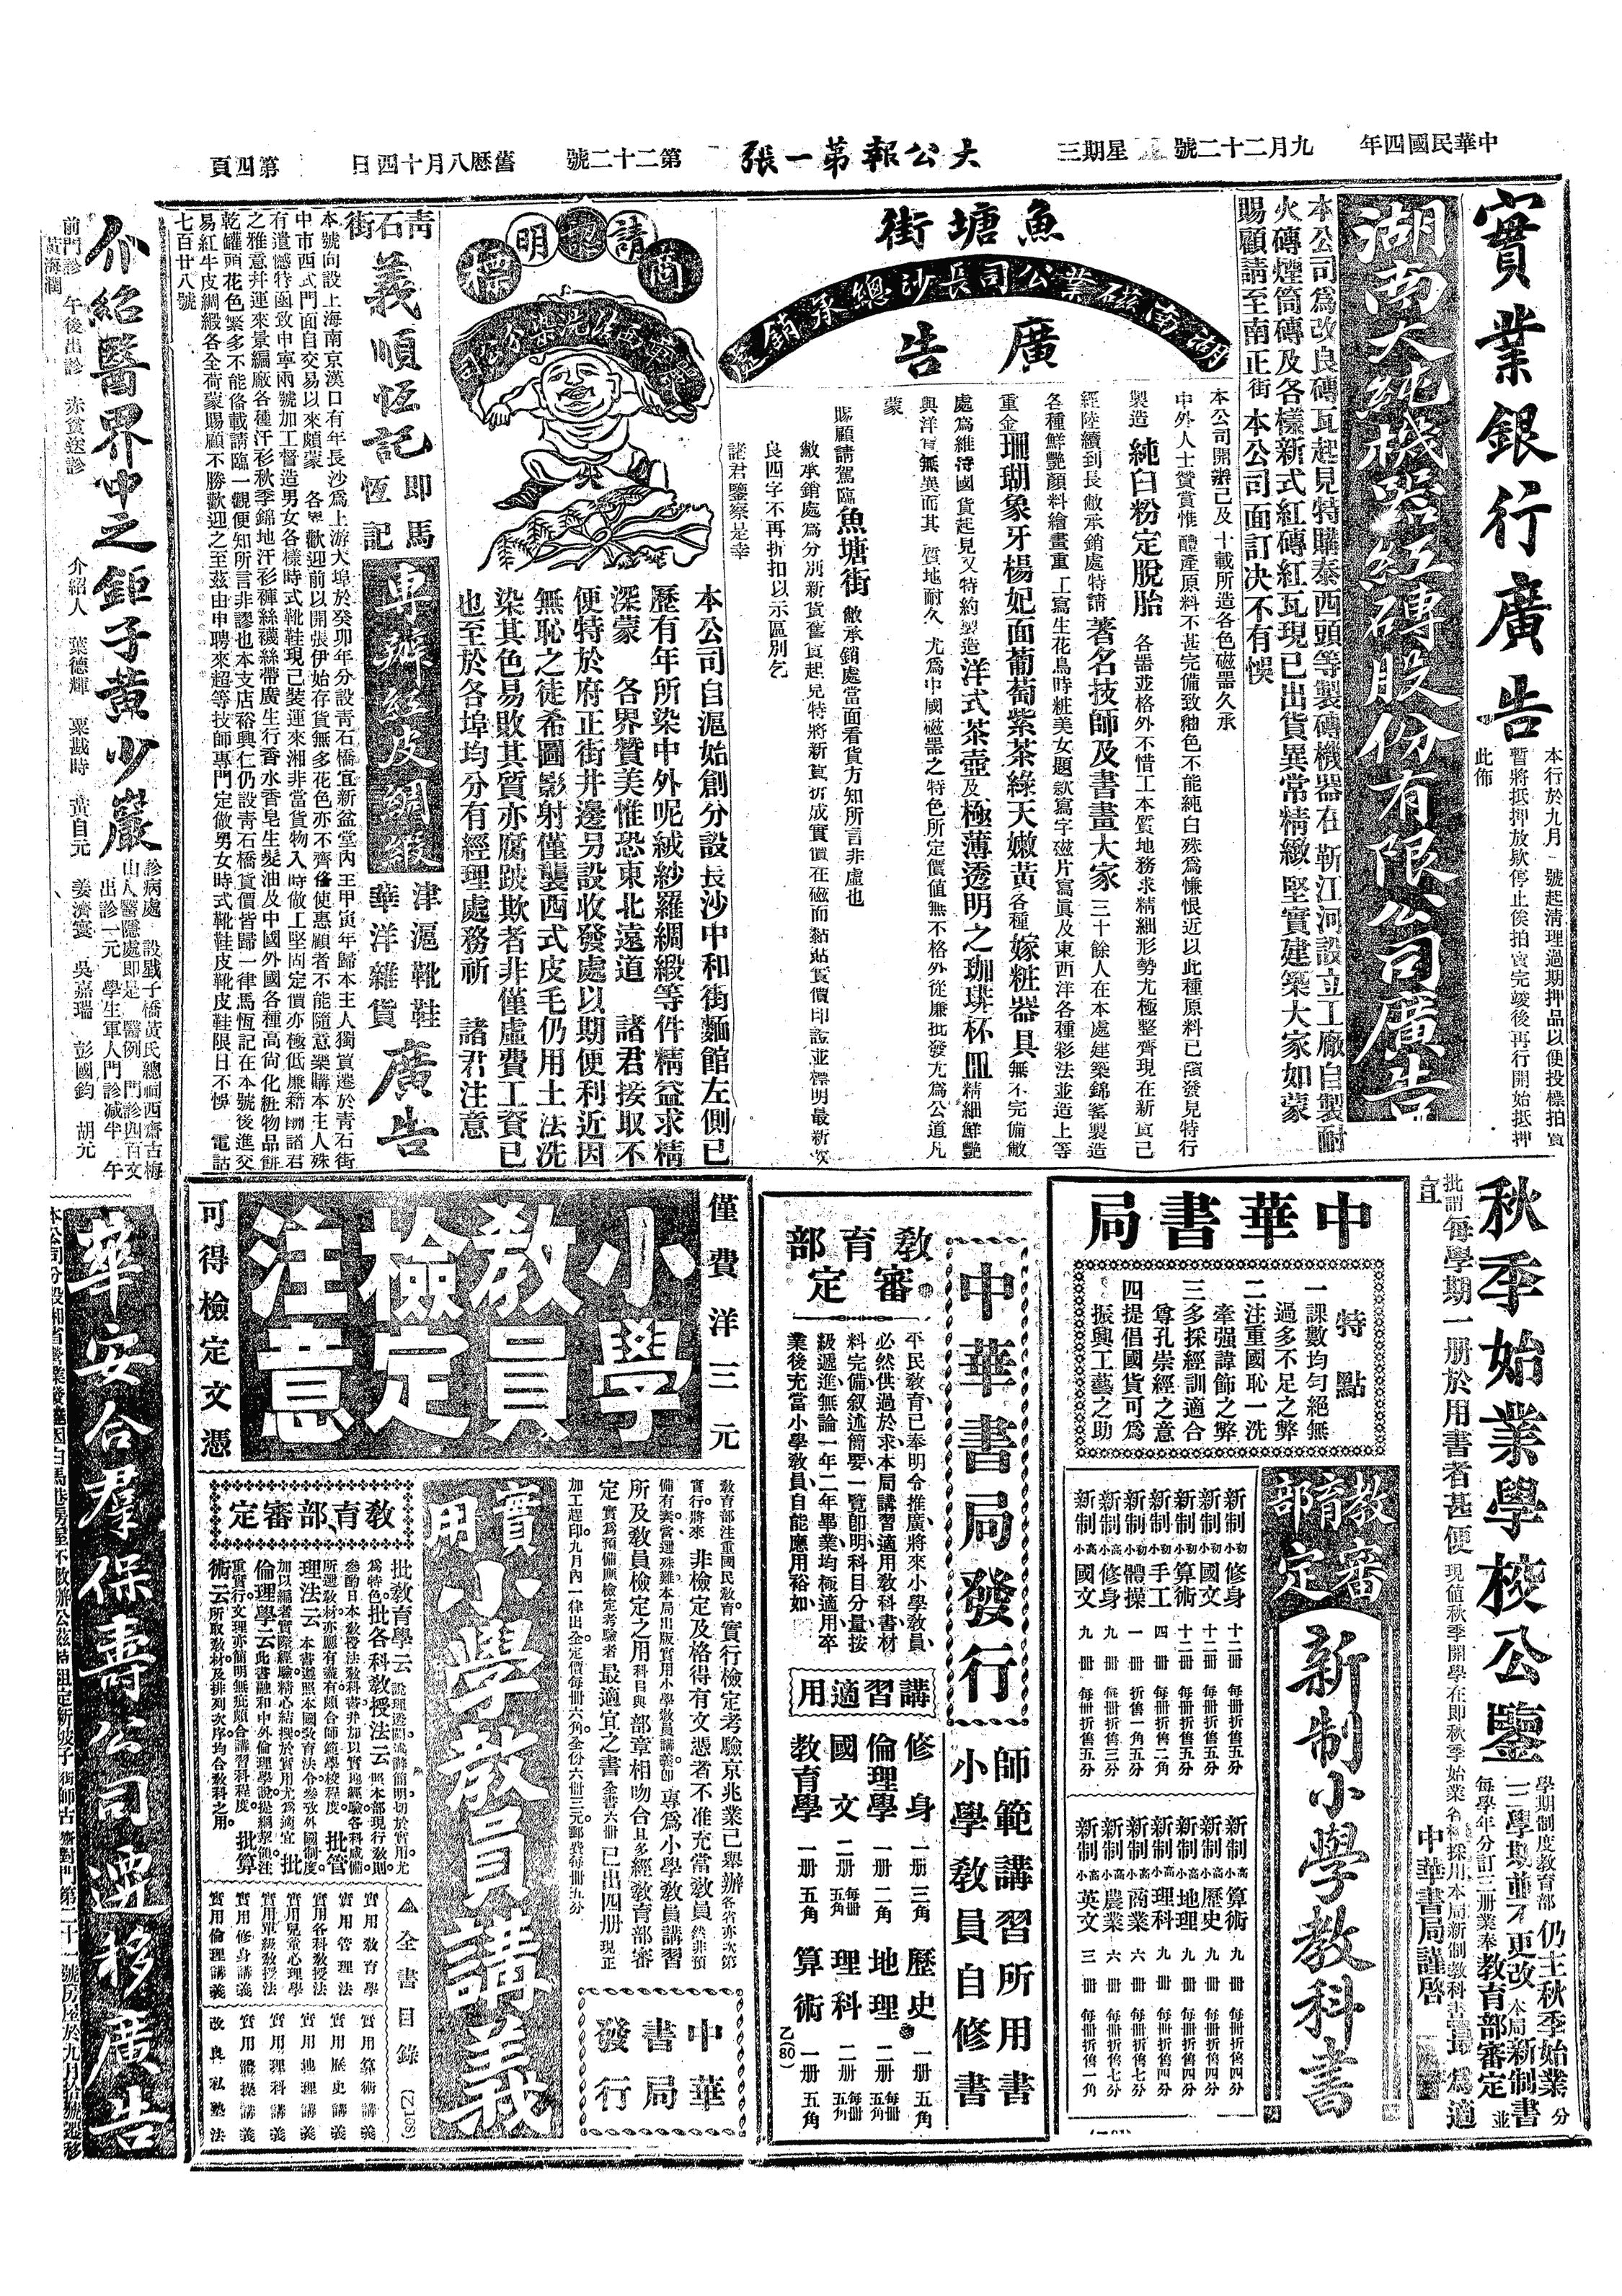 中華民國四年
九月二十二號
星期三
大公報第一張
第二十二號
舊歷八月十四日
第四頁
實業銀行廣告
本行於九月一號起清理過期押品以便投標拍賣
暫將抵押放欵停止俟拍賣完竣後再行開始抵押
此佈
湖南大純機器紅磚股份有限公司廣告
本公司爲改良磚瓦起見特購泰西頭等製磚機器在靳江河設立工廠自製耐
火磚煙筒磚及各樣新式紅磚紅瓦現已出貨異常精緻堅實建築大家如蒙
賜顧請至南正街 本公司面訂決不有悞
魚塘街
湖南磁業公司長沙總承銷處
廣告
本公司開業已及十載所造各色磁器久承
中外人士賛賞惟醴產原料不甚完備致釉色不能純白殊爲慊恨近以此種原料已發見特行
製造 純白粉定脫胎 各器並格外不惜工本質地務求精細形勢尤極整齊現在新貨已
經陸續到長敝承銷處特請著名技師及書畫大家三十餘人在本處建築錦窰製造
各種鮮艷顏料繪畫重工寫生花鳥時粧美女題欵寫字磁片寫眞及東西洋各種彩法並造上等
重金珊瑚象牙楊妃面葡萄紫茶綠天嫩黃各種嫁粧器具無不完備敝
處爲維持國貨起見又特約製造洋式茶壺及極薄透明之珈琲杯皿精細鮮艷
與洋貨無異而其質地耐久尤爲中國磁器之特色所定價值無不格外從廉批發尤爲公道凡
蒙
賜顧請駕臨魚塘街敝承銷處當面看貨方知所言非虛也
敝承銷處爲分別新貨舊貨起見特將新貨折成實價在磁面黏站貨價印證並標明最新改
良四字不再折扣以示區別乞
諸君鑒察是幸
請認明商標
本公司自滬始創分設長沙中和街麵館左側已
歷有年所染中外呢絨紗羅綢緞等件精益求精
深蒙 各界贊美惟恐東北遠道 諸君接取不
便特於府正街井邊另設收發處以期便利近因
無恥之徒希圖影射僅襲西式皮毛仍用土法洗
染其色易敗其質亦腐跛欺者非僅虛費工資已
也至於各埠均分有經理處務祈 諸君注意
青石街
義順恆記
即馬恆記
專辦紅皮綢緞
津滬靴鞋
華洋雜貨
廣告
本號向設上海南京漢口有年長沙爲上游大埠於癸卯年分設靑石橋宜新盆堂內王甲寅年歸本主人獨貿遷於靑石街
中市西式門面自交易以來頗蒙 各界歡迎前以開張伊始存貨無多花色亦不齊俻使惠顧者不能隨意樂購本主人殊
有遺憾特函致申寧兩號加工督造男女各樣時式靴鞋現已裝運來湘非當貨物入時做工堅固定價亦極低廉藉酬諸君
之雅意幷運來景綸廠各種汗衫秋季錦地汗衫褲絲襪絲帶廣生行香水香皂生髮油及中國外國各種高尙化粧物品餅
乾罐頭花色繁多不能俻載請臨一觀便知所言非謬也本支店裕興仁仍設靑石橋貨價皆歸一律馬恆記在本號後進交
易紅牛皮綢緞各全荷蒙賜顧不勝歡迎之至茲由申聘來超等技師專門定做男女時式靴鞋皮靴皮鞋限日不悞 電話
七百廿八號
介紹醫界中之鉅子黃少巖
診病處 設戥子橋黃氏總祠西齋古梅
山人醫隱處即是 醫例 門診四百文
出診一元 學生軍人門診減半 午
前門診 午後出診 赤貧送診
介紹人 葉德輝 粟戡時 黃自元 姜濟寰 吳嘉瑞 彭國鈞 胡元
黃海潤
秋季始業學校公鑒
學期制度教育部仍主秋季始業分
三學期並不更改本局新制書
每學年分訂三册業奉教育部審定並
批謂每學期一册於用書者甚便現值秋季開學在即秋季始業各校採用本局新制教科書最爲適
宜
中華書局謹啓
中華書局
特點
一課數均勻絕無
過多不足之弊
二注重國恥一洗
牽强諱飾之弊
三多採經訓適合
尊孔崇經之意
四提倡國貨可爲
振興工藝之助
教育部審定
新制小學教科書
新制初小修身 十二冊 每冊折售五分
新制初小國文 十二冊 每冊折售五分
新制初小算術 十二冊 每冊折售五分
新制初小手工 四冊 每冊折售二角
新制初小體操 一冊 折售一角五分
新制高小修身 九冊 每冊折售三分
新制高小國文 九冊 每冊折售五分
新制高小算術 九冊 每冊折售四分
新制高小歷史 九冊 每冊折售四分
新制高小地理 九冊 每冊折售四分
新制高小理科 九冊 每冊折售四分
新制高小商業 六冊 每冊折售七分
新制高小農業 六冊 每冊折售七分
新制高小英文 三冊 每冊折售一角
中華書局發行
師範講習所用書
小學教員自修書
教育部審定
平民教育已奉明令推廣將來小學教員
必然供過於求本局講習適用教科書材
料完備叙述簡要一覽即明科目分量按
級遞進無論一年二年畢業均極適用卒
業後充當小學教員自能應用裕如
講習適用
修身 一册 三角
倫理學 一册 二角
國文 二册 每册五角
教育學 一册 五角
歷史 一册 五角
地理 二册 每册五角
理科 二册 每册五角
算術 一册 五角
(乙80)
僅費洋三元
小學教員檢定注意
可得檢定文憑
教育部注重國民教育實行檢定考驗京兆業已舉辦各省亦次第
實行將來非檢定及格得有文憑者不准充當教員然非預
備有素當選殊難本局出版實用小學教員講義即專爲小學教員講習
所及教員檢定之用科目與部章相吻合且多經教育部審
定實爲預備應檢定考驗者最適宜之書全書六冊已出四册現正
加工趕印九月內一律出全定價每冊六角全份六冊三元郵費每冊五分
實用小學教員講義
中華書局發行
教育部審定
批教育學云說理透闢流辭簡明切於實用尤
爲特色批各科教授法云照本部現行教則
參酌日本教授法教科書并加以實地經驗各科咸備
所選教材亦應有盡有頗合師範學校程度批管
理法云本書遵照本國教育法令參攷外國制度
加以編者實際經驗精心結撰於實用尤爲適宜批
倫理學云此書融和中外倫理學說提綱挈領注
重實行文理亦簡明無疵頗合講習科程度批算
術云所取教材及排列次序均合教科之用
全書目錄
實用教育學
實用管理法
實用各科教授法
實用兒童心理學
實用單級教授法
實用修身講義
實用倫理講義
實用算術講義
實用歷史講義
實用地理講義
實用理科講義
實用體操講義
改良私塾法
華安合羣保壽公司遷移廣告